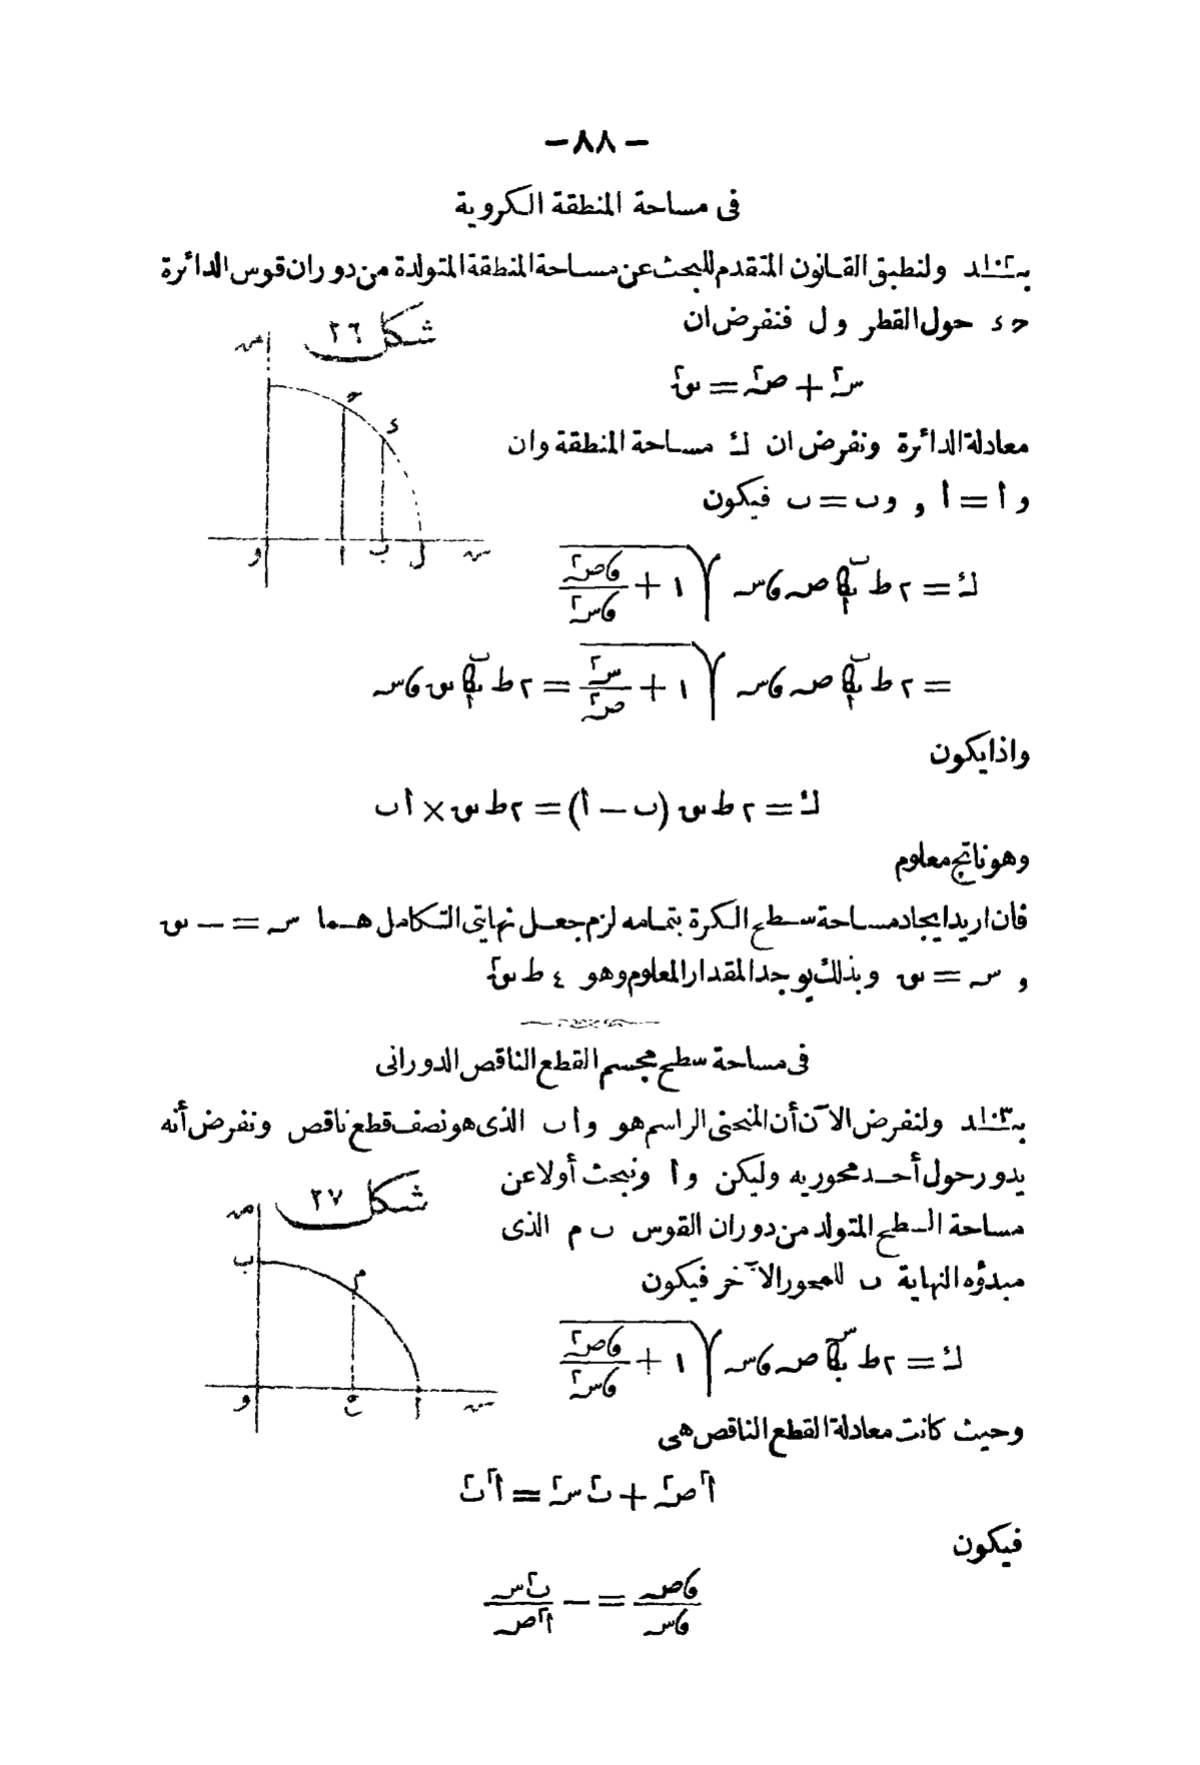 - ٨٨ -
فى مساحة المنطقة الكروية
بـ١٠٢ـد ولنطبق القانون المتقدم للبحث عن مساحة المنطقة المتولدة من دوران قوس الدائرة
حـ ء حول القطر و ل فنفرض ان
شكل ٢٦
صـ
حـ
ء
و ا ب ل سـ
سـ٢ + صـ٢ = س٢
معادلة الدائرة ونفرض ان ك مساحة المنطقة وان
و ا = أ , و ب = ب فيكون
ك = ٢ ط صـ ءسـ √(١ + ءصـ٢/ءسـ٢)
= ٢ ط صـ ءسـ √(١ + سـ٢/صـ٢) = ٢ ط س ءسـ
واذا يكون
ك = ٢ ط س (ب - أ) = ٢ ط س × ا ب
وهو ناتج معلوم
فان اريد ايجاد مساحة سطح الكرة بتمامه لزم جعل نهايتى التكامل هما سـ = - س
, سـ = س وبذلك يوجد المقدار المعلوم وهو ٤ ط س٢
فى مساحة سطح مجسم القطع الناقص الدورانى
بـ١٠٣ـد ولنفرض الآن أن المنحنى الراسم هو و ا ب الذى هو نصف قطع ناقص ونفرض أنه
يدور حول أحد محوريه وليكن و أ ونبحث أولا عن
شكل ٢٧
صـ
ب
م
و ع ا سـ
مساحة السطح المتولد من دوران القوس ب م الذى
مبدؤه النهاية ب للمحور الآخر فيكون
ك = ٢ ط صـ ءسـ √(١ + ءصـ٢/ءسـ٢)
وحيث كانت معادلة القطع الناقص هى
أ٢ صـ٢ + ب٢ سـ٢ = أ٢ ب٢
فيكون
ءصـ/ءسـ = - ب٢ سـ/أ٢ صـ